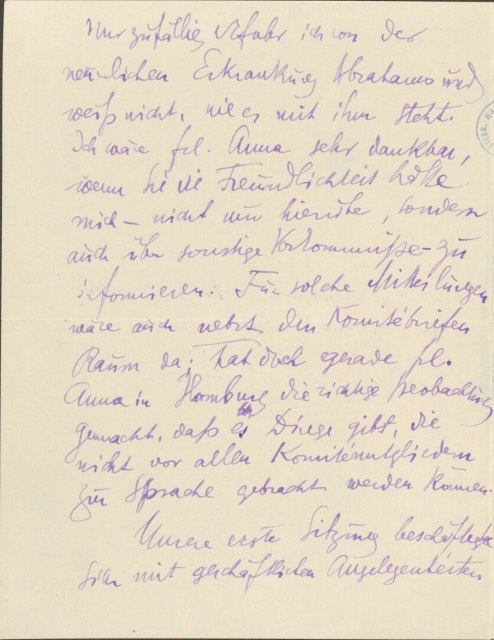 Nur zufällig erfuhr ich von der
neuerlichen Erkrankung Abrahams und
weiß nicht, wie es mit ihm steht.
Ich wäre frl. Anna sehr dankbar,
wenn Sie die Freundlichkeit hätte
mich – nicht nur hierüber, sondern
auch über sonstige Vorkommnisse – zu
informieren. Für solche Mitteilungen
wäre auch nebst den Komitébriefen
Raum da; hat doch gerade frl.
Anna in Homburg die richtige Beobachtung
gemacht, daß es Dinge gibt, die
nicht vor allen Komitémitgliedern
zur Sprache gebracht werden können.
Unsere erste Sitzung beschäftigte
sich mit geschäftlichen Angelegenheiten